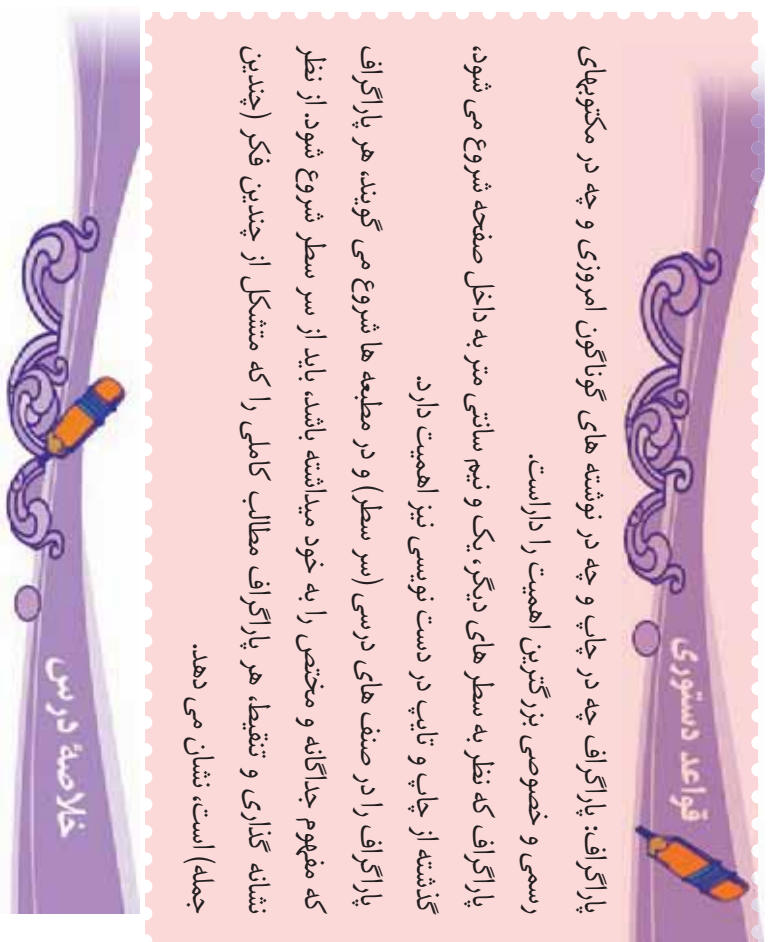 قواعد دستوری
پاراگراف: پاراگراف چه در چاپ و چه در نوشته های گوناگون امروزی و چه در مکتوبهای
رسمی و خصوصی بزرگترین اهمیت را داراست.
پاراگراف که نظر به سطر های دیگر، یک و نیم سانتی متر به داخل صفحه شروع می شود،
گذشته از چاپ و تایپ در دست نویسی نیز اهمیت دارد.
پاراگراف را در صنف های درسی (سر سطر) و در مطبعه ها شروع می گویند، هر پاراگراف
که مفهوم جداگانه و مختص را به خود میداشته باشد، باید از سر سطر شروع شود. از نظر
نشانه گذاری و تنقیط، هر پاراگراف مطالب کاملی را که متشکل از چندین فکر (چندین
جمله) است، نشان می دهد.
خلاصۀ درس